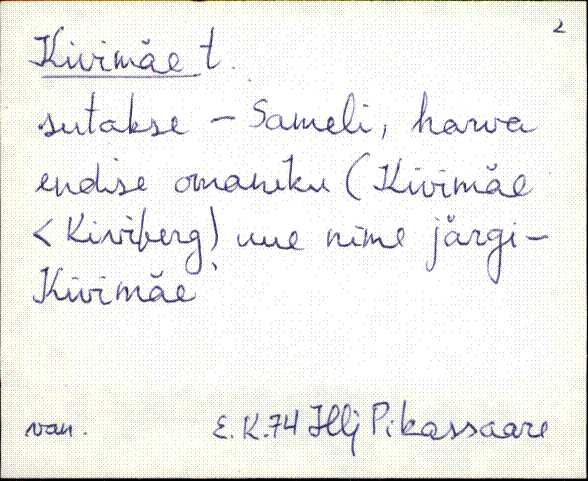 2
Kivimäe t.
sutakse - Sameli, harva
endise omaniku (Kivimäe
< Kiviberg) uue nime järgi -
Kivimäe
van. E. K. 74 Hlj Pikassaare